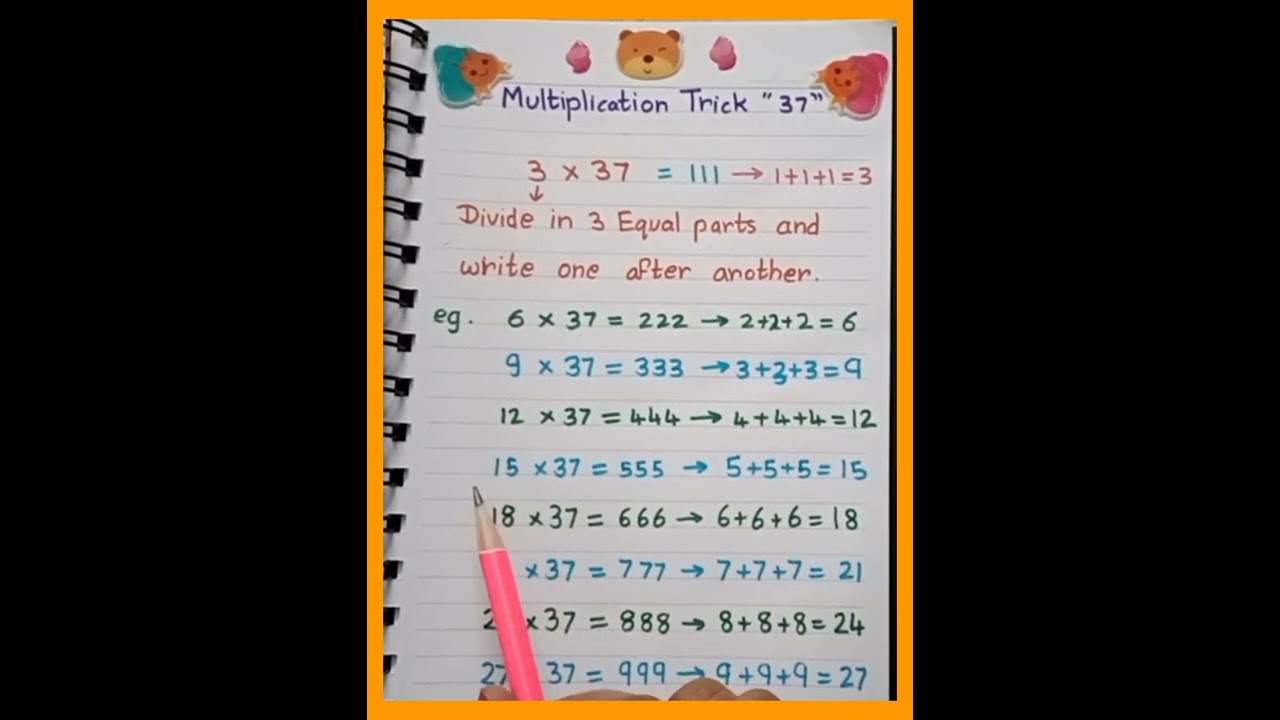 Multiplication Trick "37"
3 × 37 = 111 → 1+1+1=3
↓
Divide in 3 Equal parts and
write one after another.
eg. 6 × 37 = 222 → 2+2+2=6
9 × 37 = 333 → 3+3+3=9
12 × 37 = 444 → 4+4+4=12
15 × 37 = 555 → 5+5+5=15
18 × 37 = 666 → 6+6+6=18
× 37 = 777 → 7+7+7=21
2 × 37 = 888 → 8+8+8=24
27 37 = 999 → 9+9+9=27